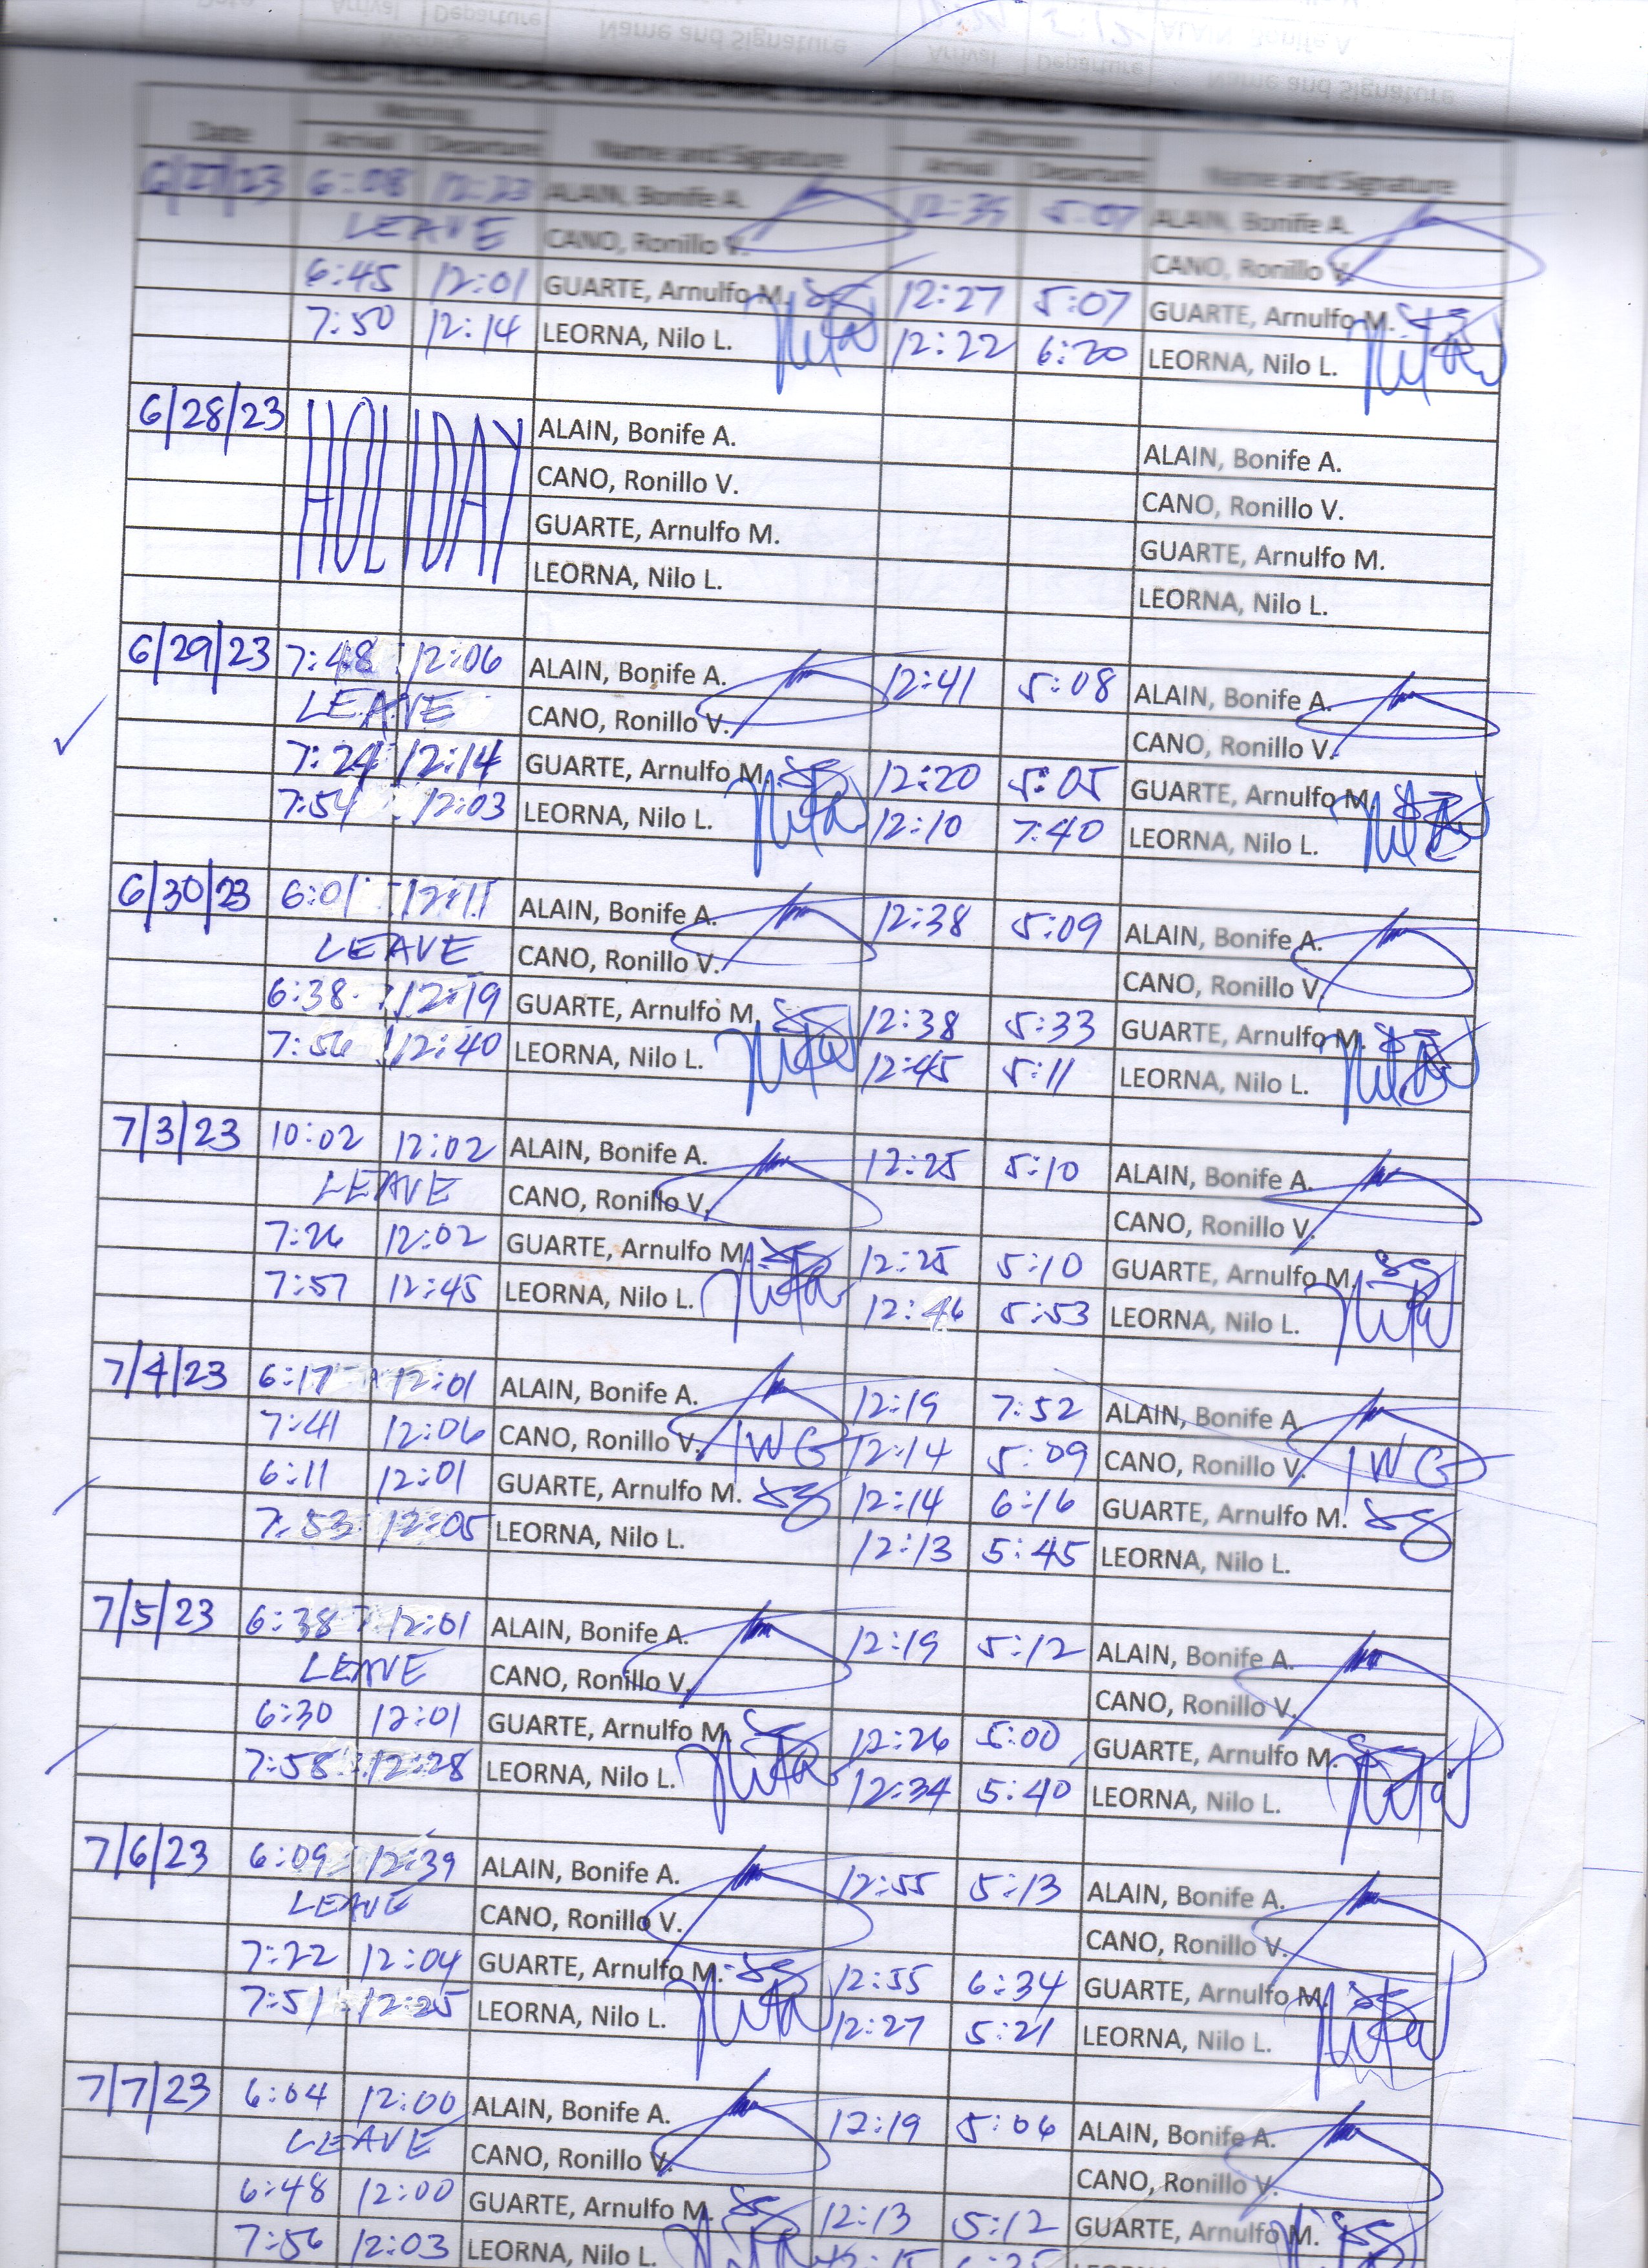 Date Morning Name and Signature Afternoon Name and Signature
Arrival Departure Arrival Departure
6/27/23 6:08 12:33 ALAIN, Bonife A. 12:35 5:07 ALAIN, Bonife A.
LEAVE CANO, Ronillo V. CANO, Ronillo V.
6:45 12:01 GUARTE, Arnulfo M. 12:27 5:07 GUARTE, Arnulfo M.
7:50 12:14 LEORNA, Nilo L. 12:22 6:20 LEORNA, Nilo L.
6/28/23 HOLIDAY ALAIN, Bonife A. ALAIN, Bonife A.
CANO, Ronillo V. CANO, Ronillo V.
GUARTE, Arnulfo M. GUARTE, Arnulfo M.
LEORNA, Nilo L. LEORNA, Nilo L.
6/29/23 7:48 12:06 ALAIN, Bonife A. 12:41 5:08 ALAIN, Bonife A.
LEAVE CANO, Ronillo V. CANO, Ronillo V.
7:24 12:14 GUARTE, Arnulfo M. 12:20 5:05 GUARTE, Arnulfo M.
7:54 12:03 LEORNA, Nilo L. 12:10 7:40 LEORNA, Nilo L.
6/30/23 6:01 12:11 ALAIN, Bonife A. 12:38 5:09 ALAIN, Bonife A.
LEAVE CANO, Ronillo V. CANO, Ronillo V.
6:38 12:19 GUARTE, Arnulfo M. 12:38 5:33 GUARTE, Arnulfo M.
7:56 12:40 LEORNA, Nilo L. 12:45 5:11 LEORNA, Nilo L.
7/3/23 10:02 12:02 ALAIN, Bonife A. 12:25 5:10 ALAIN, Bonife A.
LEAVE CANO, Ronillo V. CANO, Ronillo V.
7:26 12:02 GUARTE, Arnulfo M. 12:25 5:10 GUARTE, Arnulfo M.
7:57 12:45 LEORNA, Nilo L. 12:46 5:53 LEORNA, Nilo L.
7/4/23 6:17 12:01 ALAIN, Bonife A. 12:19 7:52 ALAIN, Bonife A.
7:41 12:06 CANO, Ronillo V. 12:14 5:09 CANO, Ronillo V.
6:11 12:01 GUARTE, Arnulfo M. 12:14 6:16 GUARTE, Arnulfo M.
7:53 12:05 LEORNA, Nilo L. 12:13 5:45 LEORNA, Nilo L.
7/5/23 6:38 12:01 ALAIN, Bonife A. 12:19 5:12 ALAIN, Bonife A.
LEAVE CANO, Ronillo V. CANO, Ronillo V.
6:30 12:01 GUARTE, Arnulfo M. 12:26 5:00 GUARTE, Arnulfo M.
7:58 12:28 LEORNA, Nilo L. 12:34 5:40 LEORNA, Nilo L.
7/6/23 6:09 12:39 ALAIN, Bonife A. 12:55 5:13 ALAIN, Bonife A.
LEAVE CANO, Ronillo V. CANO, Ronillo V.
7:22 12:04 GUARTE, Arnulfo M. 12:55 6:34 GUARTE, Arnulfo M.
7:51 12:25 LEORNA, Nilo L. 12:27 5:21 LEORNA, Nilo L.
7/7/23 6:04 12:00 ALAIN, Bonife A. 12:19 5:06 ALAIN, Bonife A.
LEAVE CANO, Ronillo V. CANO, Ronillo V.
6:48 12:00 GUARTE, Arnulfo M. 12:13 5:12 GUARTE, Arnulfo M.
7:56 12:03 LEORNA, Nilo L.